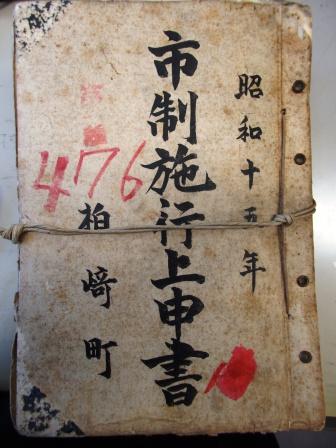 昭和十五年
市制施行上申書
柏﨑町
476